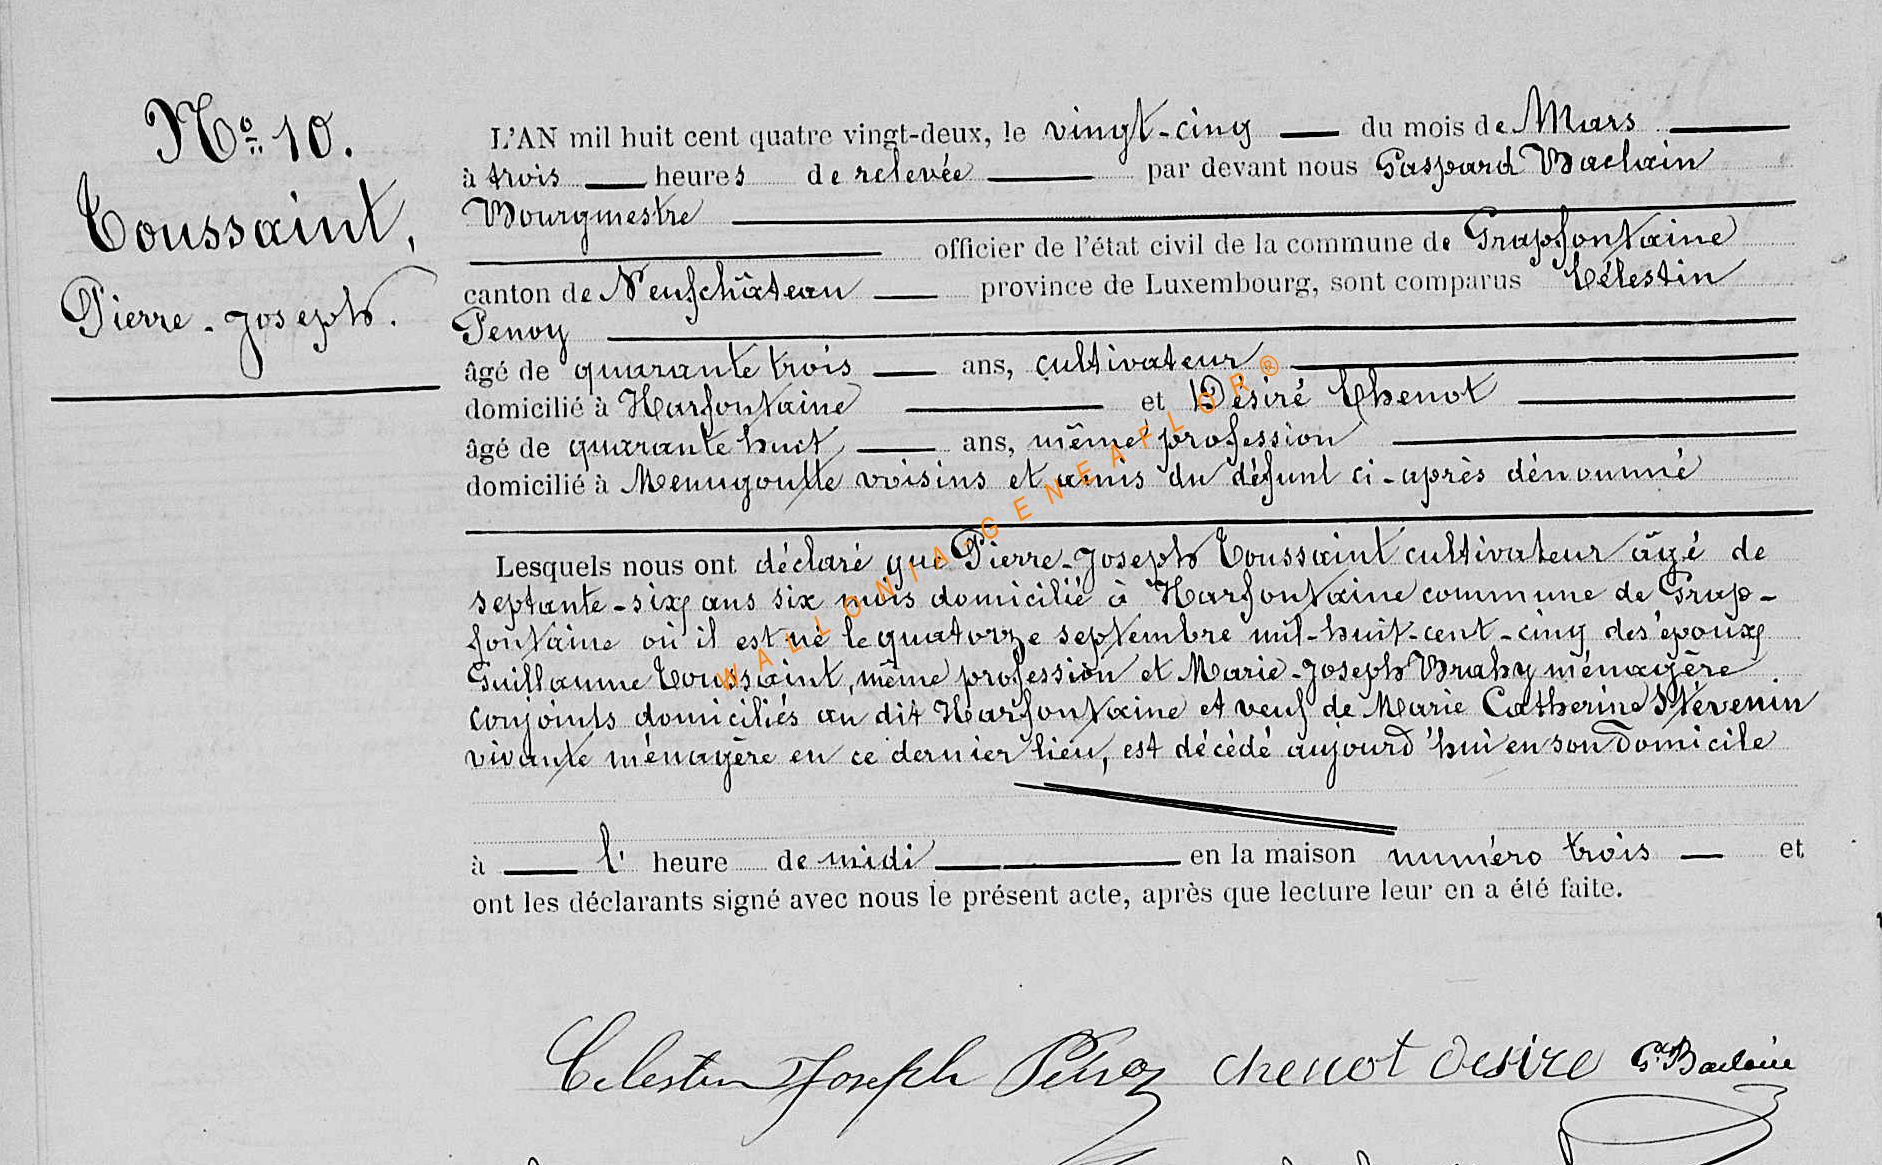 No. 10.
Toussaint,
Pierre-Joseph.
L'AN mil huit cent quatre vingt-deux, le vingt-cinq du mois de Mars
à trois heures de relevée par devant nous Gaspard Baclain
Bourgmestre
officier de l'état civil de la commune de Grapfontaine
canton de Neufchâteau province de Luxembourg, sont comparus Célestin
Penoy
âgé de quarante trois ans, cultivateur
domicilié à Harfontaine et Désiré Chenot
âgé de quarante huit ans, même profession
domicilié à Menugoutte voisins et amis du défunt ci-après dénommé
Lesquels nous ont déclaré que Pierre-Joseph Toussaint cultivateur âgé de
septante-six ans six mois domicilié à Harfontaine commune de Grap-
fontaine où il est né le quatorze septembre mil-huit-cent-cinq des époux
Guillaume Toussaint, même profession et Marie-Joseph Brahy ménagère
conjoints domiciliés au dit Harfontaine et veuf de Marie Catherine Stévenin
vivante ménagère en ce dernier lieu, est décédé aujourd'hui en son domicile
à l' heure de midi en la maison numéro trois et
ont les déclarants signé avec nous le présent acte, après que lecture leur en a été faite.
Celestin Joseph Penoy chenot desire G. Baclain
WALLONIA-GENEAFLOR®